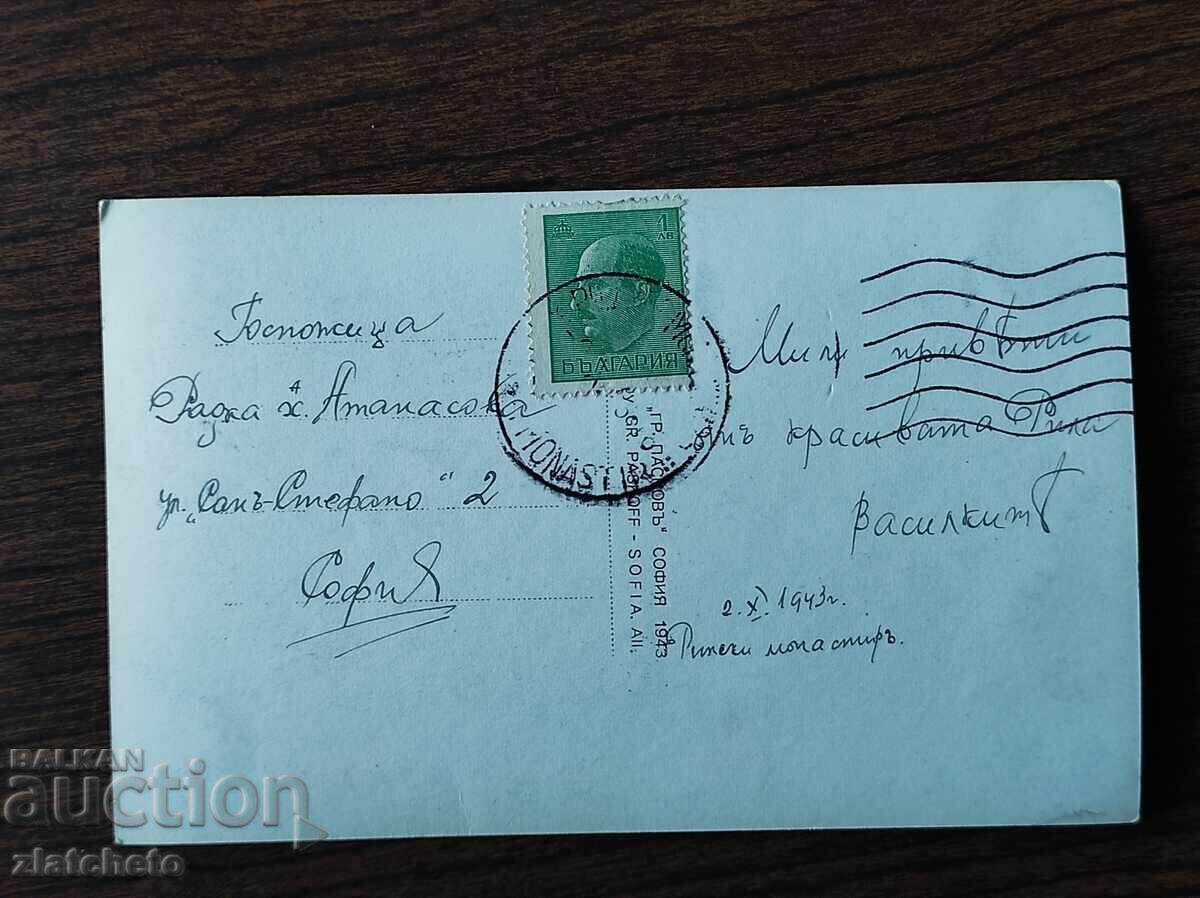 Госпожица
Радка х. Атанасова
ул. „Санъ-Стефано“ 2
София
1
ЛВ
БЪЛГАРИЯ
MONASTIR
„ГР. ПАСКОВЪ“ СОФИЯ 1943.
GR. PASKOFF - SOFIA. All.
Мили привѣти
отъ красивата Рила
Василкитѣ
2.XI.1943г.
Рилски монастиръ.
BALKAN
auction
zlatcheto